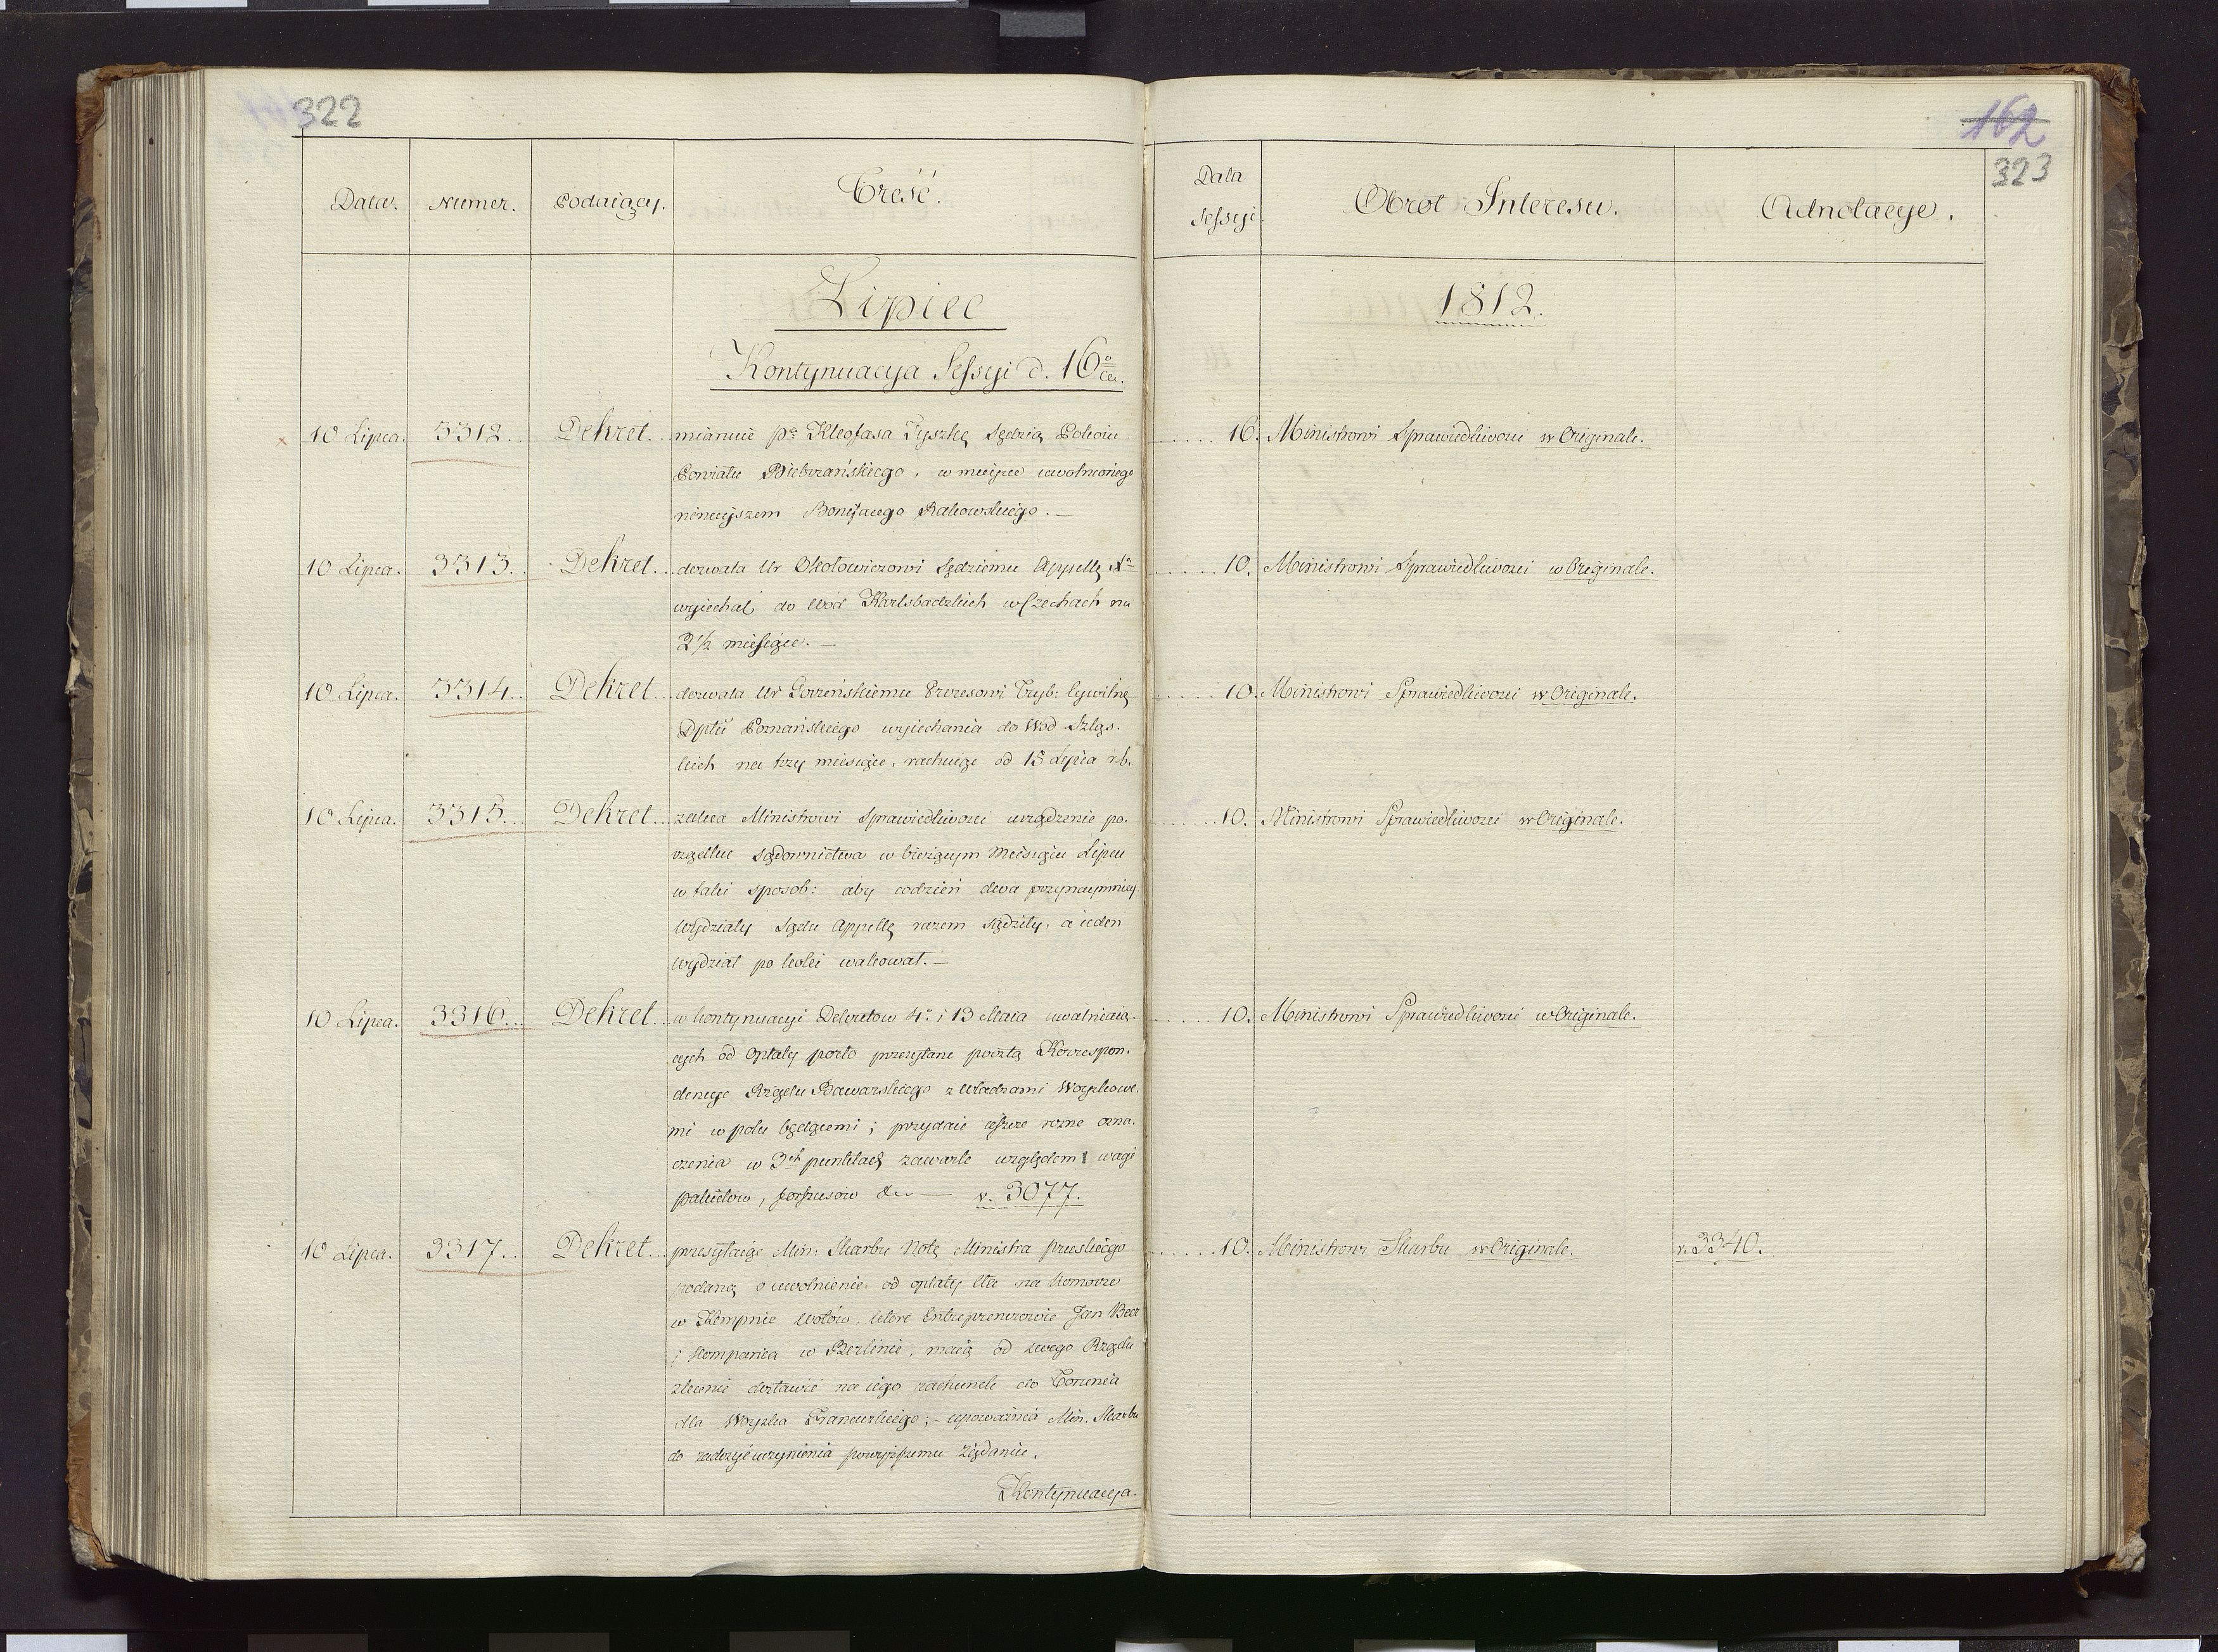 322
162
323
Data. Numer. Podaiący. Treść. Data Sessyi. Obrot Interesu. Adnotacye.
Lipiec 1812.
Kontynuacya Sessyi d. 16º
10 Lipca. 3312. Dekret. mianuie Pa Kleofasa Tyszkę Sędzią Pokoiu ..... 16. Ministrowi Sprawiedliwości w Originale.
Powiatu Biebrzańskiego, w mieysce uwolnionego
ninieyszem Bonifacego Rakowskiego. —
10 Lipca. 3313. Dekret. dozwala Ur Okołowiczowi Sędziemu Appellą ..... 10. Ministrowi Sprawiedliwości w Originale.
wyiechać do Wód Karlsbadzkich w Czechach na
2½ miesięce. —
10 Lipca. 3314. Dekret dozwala Ur Gorzeńskiemu Prezesowi Tryb: Cywilnę ..... 10. Ministrowi Sprawiedliwości w Originale.
Dptu Poznańskiego wyiechania do Wód Szląs-
kich na trzy miesiące, rachuiąc od 15 Lipca r.b.
10 Lipca. 3315. Dekret zaleca Ministrowi Sprawiedliwości urządzenie po- ..... 10. Ministrowi Sprawiedliwości w Originale.
rządku Sądownictwa w bieżącym Miesiącu Lipcu
w taki sposob: aby codzień dwa przynaymniey
Wydziały Sądu Appellę razem Sądziły, a ieden
wydział po kolei wakował. —
10 Lipca. 3316. Dekret w kontynuacyi Dekretow 4º i 13 Maia uwalniaią- ..... 10. Ministrowi Sprawiedliwości w Originale.
cych od opłaty porto przesyłane pocztą Korrespon-
dencye Rządu Bawarskiego z Władzami Woyskowe-
mi w polu będącemi; przydaie ieszcze rozne ozna-
czenia w 3ch punktach zawarte względem wagi
pakietow, forszusów &c — v. 3077.
10 Lipca. 3317. Dekret przesyłaiąc Min: Skarbu Notę Ministra pruskiego ..... 10. Ministrowi Skarbu w Originale. v. 3340.
podaną o uwolnienie od opłaty Cła na komorze
w Kempnie Wołów, które Entreprenerowie Jan Beer
i kompania w Berlinie, maią od swego Rządu
zlecenie dostawić na iego rachunek do Torunia
dla Woyska Francuskiego; — upoważnia Min. Skarbu
do zadosyć uczynienia powyższemu żądaniu.
Kontynuacya.